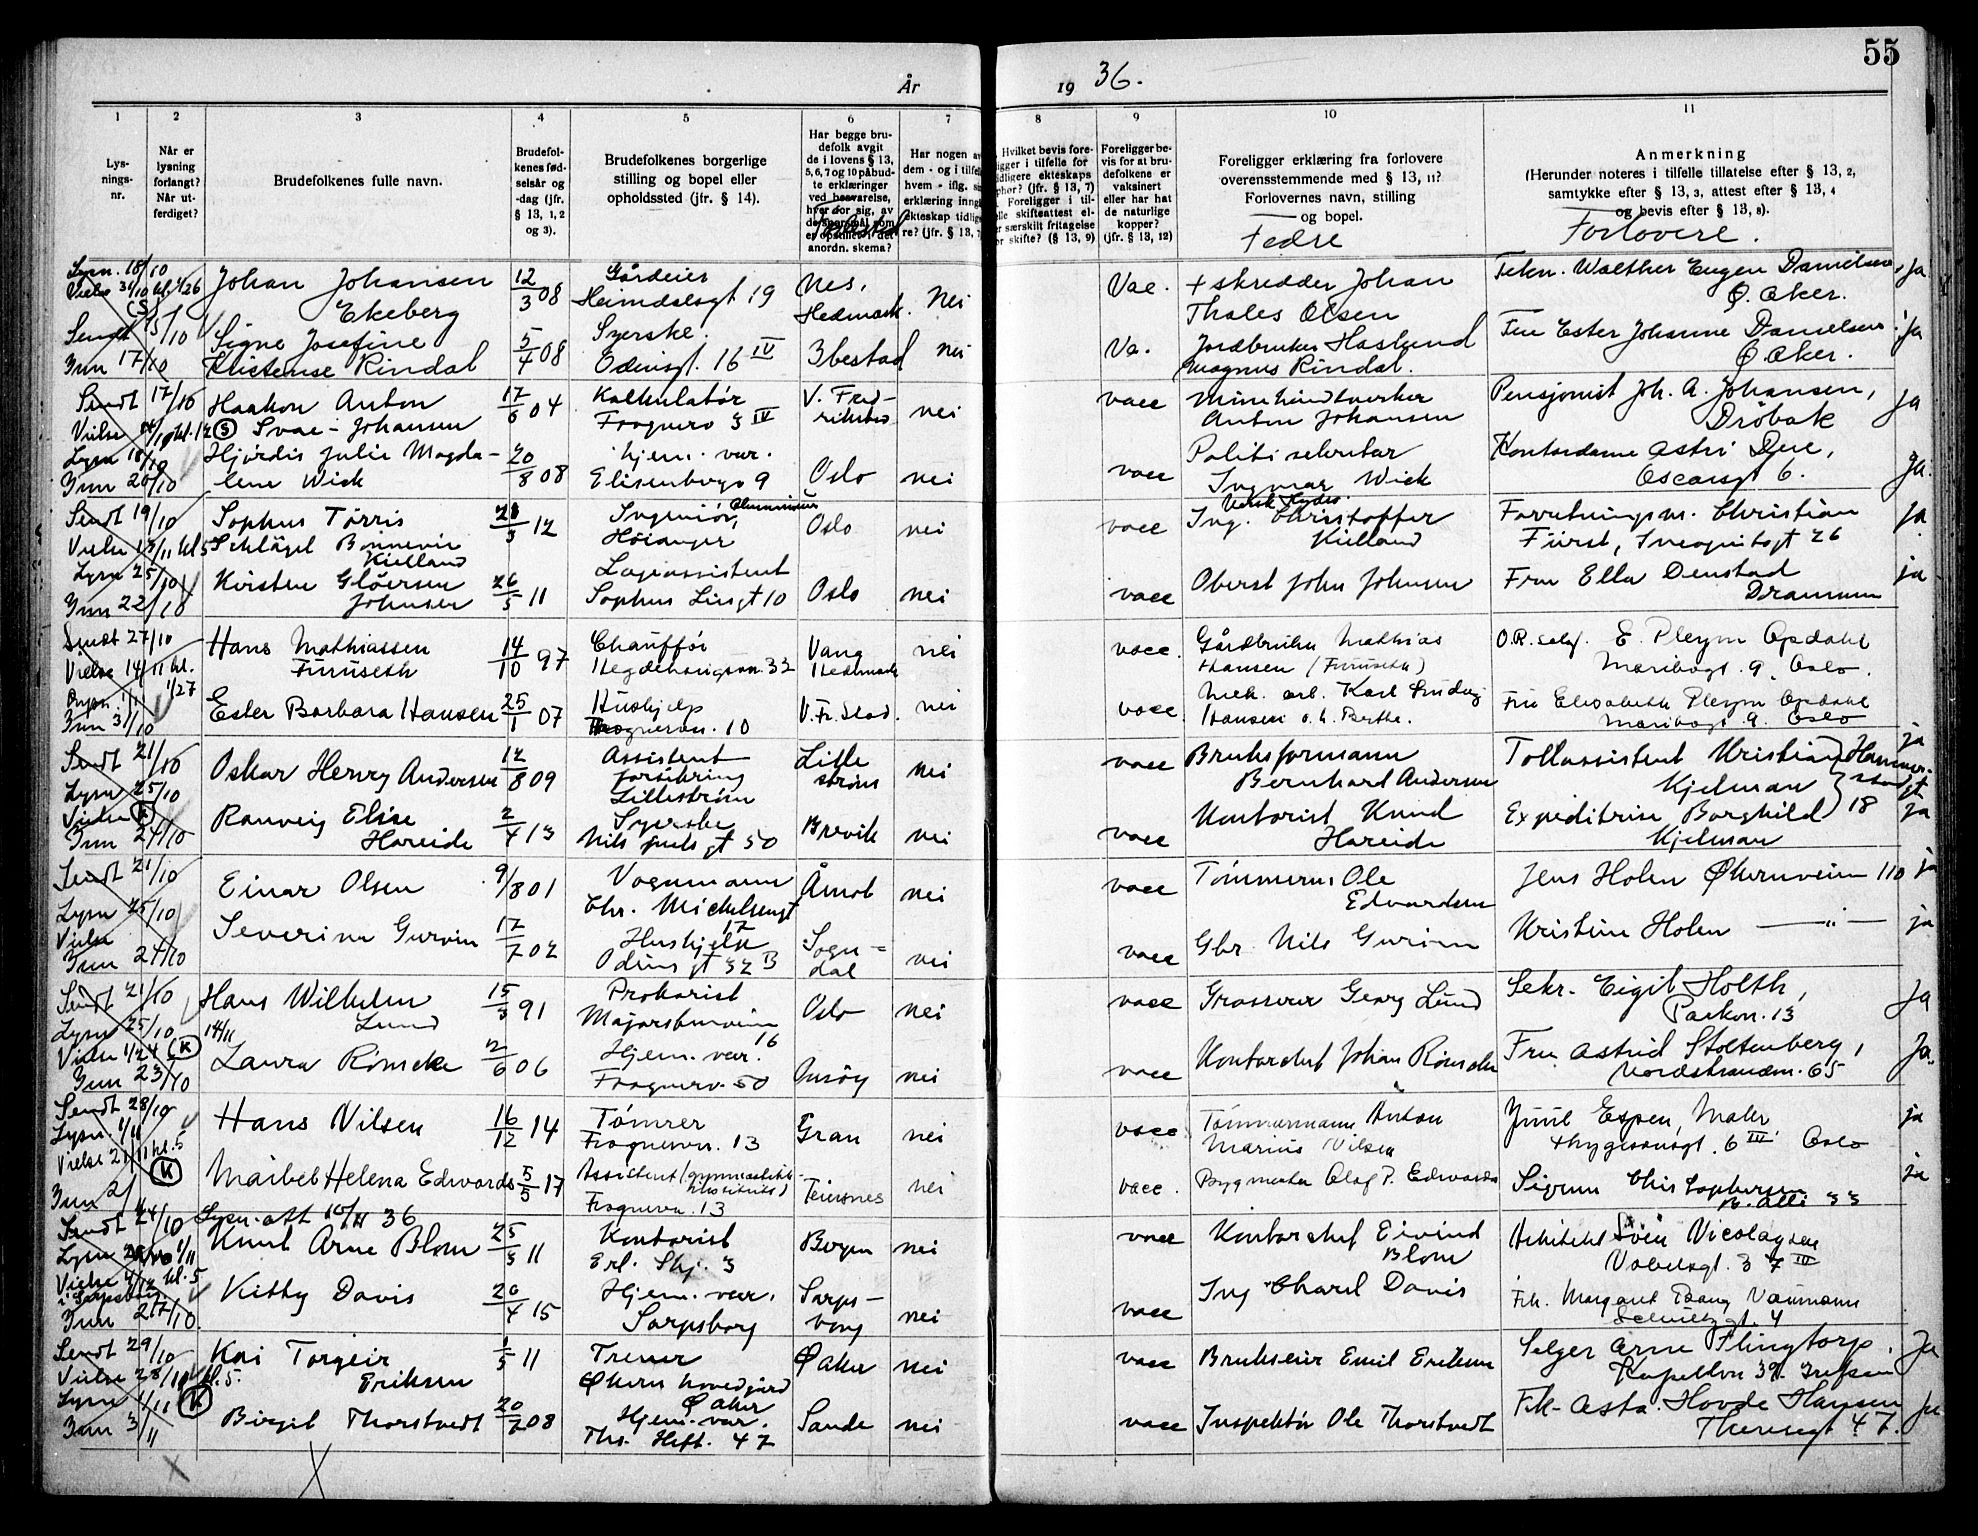 55
År 19 36.
1 2 3 4 5 6 7 8 9 10 11
Lys-
nings-
nr.
Når er
lysning
forlangt?
Når ut-
ferdiget?
Brudefolkenes fulle navn.
Brudefol-
kenes fød-
selsår og
-dag (jfr.
§ 13, 1, 2
og 3).
Brudefolkenes borgerlige
stilling og bopel eller
opholdssted (jfr. § 14).
Har begge bru-
defolk avgit
de i lovens § 13,
5, 6, 7 og 10 påbud-
te erklæringer
ved besvarelse,
hver for sig, av
de spørsmål som
er opstillet i det
anordn. skema?
Fødested
Har nogen av
dem - og i tilfelle
hvem - iflg. sin
erklæring inngått
ekteskap tidlige-
re? (jfr. § 13,
Hvilket bevis fore-
ligger i tilfelle for
tidligere ekteskaps
ophør? (jfr. § 13, 7)
Foreligger i til-
felle skifteattest el-
ler særskilt fritagelse
for skifte? (§ 13, 9)
Foreligger be-
vis for at bru-
defolkene er
vaksinert
eller har hat
de naturlige
kopper?
(jfr. § 13, 12)
Foreligger erklæring fra forlovere
overensstemmende med § 13, 11?
Forlovernes navn, stilling
og bopel.
Fedre
Anmerkning
(Herunder noteres i tilfelle tillatelse efter § 13, 2,
samtykke efter § 13, 3, attest efter § 13, 4
og bevis efter § 13, 8).
Forlovere.
Lysn. 18/10
Johan Johansen
Ekeberg
12/3 08
Gårdeier
Heimdalsgt 19
Nes,
Hedmark.
Nei
Vac.
+ skredder Johan
Thales Olsen
Tekn. Walther Eugen Danielsen,
Ø. Aker.
Ja
Sendt 15/10
Inn 17/10
Signe Josefine
Kristense Rindal
5/4 08
Syerske.
Odinsgt. 16 IV
Ibestad
nei
Va.
Jordbruker Haslund
Magnus Rindal.
Fru Ester Johanne Danielsen
Ø. Aker.
Ja
Sendt 17/10
Haakon Anton
Svae-Johansen
17/6 04
Kalkulatør
Fragnerv 3 IV
V. Fred-
rikstad
nei
vacc
Anton Johansen
Pensjonist Joh. A. Johansen,
Drøbak
Ja
Lysn 18/10
Inn 20/10
Hjørdis Julie Magda-
lene Wick
20/8 08
hjem. vær.
Elisenbergv 9
Oslo
nei
vacc
Politisekretær
Ingmar Wick
Kontordame Astri Due,
Oscarsgt 6.
Ja.
Sendt 19/10
Vielse 13/11 kl 5
Sophus Tørris
Schlägel Bonnevie
Kielland
21/3 12
Ingeniør,
Høianger
Oslo
nei
vacc
Ing. Christoffer
Kielland
Forretningsm. Christian
Fürst, Incognitogt 26
ja
Lysn 25/10
Inn 22/10
Kirsten Gløersen
Johnsen
26/5 11
Legeassistent
Sophus Liesgt 10
Oslo
nei
vacc
Oberst John Johnsen
Fru Ella Denstad
Drammen
ja
Sendt 27/10
Vielse 14/11 kl.
1/27
Hans Mathiassen
Furuseth
14/10 97
Chauffør
Hegdehaugsvn. 32
Vang
Hedmark
nei
vacc.
Gårdbruker Mathias
Hansen (Furuseth)
O.R.sakf. E. Pleym Opdahl
Maribogt. 9. Oslo.
Inn 31/10
Ester Barbara Hansen
25/1 07
Hushjelp
Frognervn. 10
V. Fr.stad.
nei
vacc.
Mek. arb. Karl Ludvig
Hansen o. h. Berthe.
Fru Elisabeth Pleym Opdahl
Maribogt. 9. Oslo
Sendt 21/10
Lysn 25/10
Oskar Henry Andersen
12/8 09
Assistent
Forsikring
Lillestrøm
Lille
strøm
nei
vacc
Bruksformann
Bernhard Andersen
Tollassistent Kristian
Kjelman
Hammer-
stads gt
18
ja
Vielse (K)
Inn 24/10
Ranveig Elise
Hareide
2/4 13
Syerske
Nils Juels gt 50
Brevik
nei
vacc
Kontorist Knud
Hareide
Expeditrise Borghild
Kjelman
ja
Sendt 21/10
Lysn 25/10
Einar Olsen
9/8 01
Vognmann
Chr. Michelsensgt
17
Åmot
nei
vacc
Tømmerm. Ole
Edvardsen
Jens Holen Økernveien 110
ja
Vielse
Inn 24/10
Severine Gurvin
17/7 02
Hushjelp
Odins gt 32 B
Sogn-
dal
nei
vacc
Gbr. Nils Gurvin
Kristine Holen — " —
ja
Sendt 21/10
Lysn 25/10
Hans Wilhelm
Lund
15/3 91
Prokurist
Majorstuveien
16
Oslo
nei
vacc
Grosserer Georg Lund
Sekr. Eigil Holth,
Parkvn. 13
Ja
14/11
Vielse 1/24 (K)
Inn 23/10
Laura Rømcke
2/6 06
Hjem. vær.
Fragnerv. 50
nei
vacc
Kontorchef Johan Rømcke
Fru Astrid Stoltenberg,
Nordstrandsv. 65
Ja.
Sendt 28/10
Lysn. 1/11
Vielse 21/11 kl. 5
Hans Nilsen
16/12 14
Tømrer
Frognervn. 13
Gran
nei
vacc
Tømmermann Anton
Marius Nilsen
Juul Espen, Maler
Thygesonsgt. 6 III Oslo
ja
(K)
Inn 2/
Maibel Helena Edwards
5/5 17
Assistent (gymnastikk-
institutt)
Frognervn. 13
nei
vacc.
Bygmester Olaf P. Edwards
Sigrun Christophersen
B. alle 33
ja
Lysn. att 10/11 36
Sendt 24/10
Knut Arne Blom
25/3 11
Kontorist
Erl. Skj. 3
Bergen
nei
vacc
Kontorchef Eivind
Blom
Arkitekt Svein Nicolaysen
Nobelsgt. 37 IV
Vielse 4/12 kl. 5
i Sarpsborg
Inn 27/10
Kitty Davis
20/4 15
Hjem. vær.
Sarpsborg
Sarps-
borg
nei
vacc
Ing Charl Davis
Frk. Margaret Naumann
Schultzgt. 4
Sendt 29/10
Vielse 28/11 kl. 5.
Kai Torgeir
Eriksen
1/5 11
Trener
Økern hovedgård
Ø Aker
Ø Aker
nei
vacc
Brukseier Emil Eriksen
Selger Arne Flingtorp,
Kapellvn 39. Grefsen
Ja
Lysn 1/11 (K)
Inn 3/11
Birgit Thorstvedt
20/7 08
Hjem. vær.
Ths. Heft. 47
Sande
nei
vacc
Inspektør Ole Thorstvedt
Frk. Asta Hovde Hansen
Theresesgt 47.
Ja